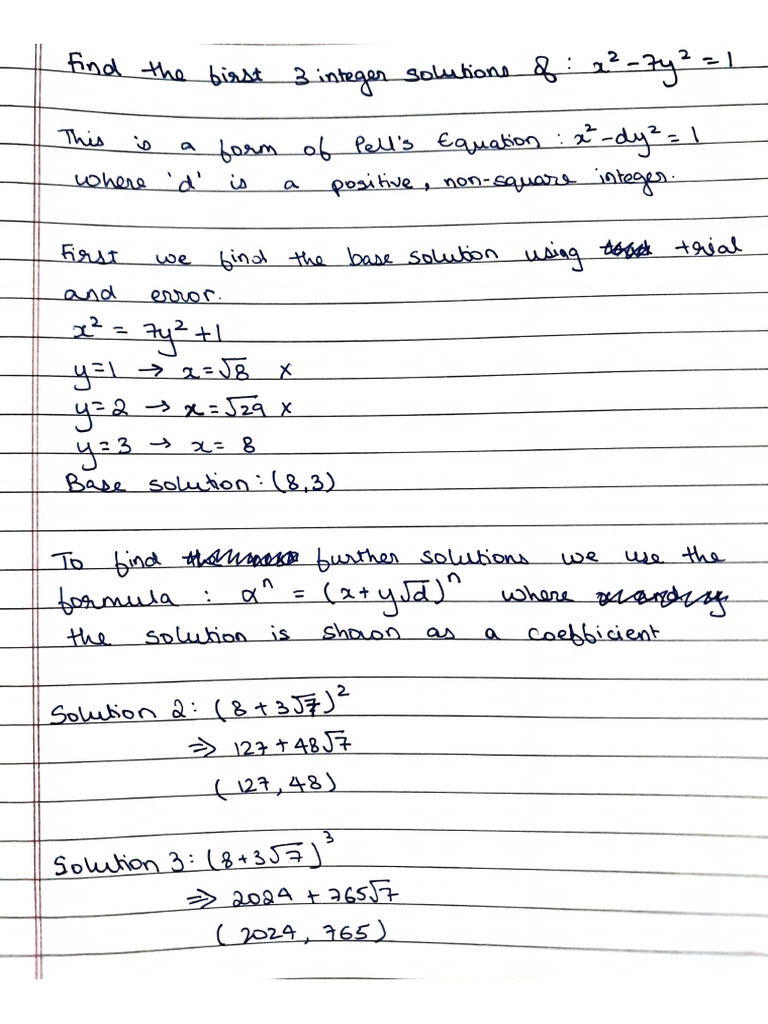 Find the first 3 integer solutions of : x² - 7y² = 1
This is a form of Pell's Equation : x² - dy² = 1
where 'd' is a positive, non-square integer.
First we find the base solution using trial
and error.
x² = 7y² + 1
y=1 → x=√8 ×
y=2 → x=√29 ×
y=3 → x= 8
Base solution : (8,3)
To find further solutions we use the
formula : αⁿ = (x+y√d)ⁿ where
the solution is shown as a coefficient
Solution 2: (8 + 3√7)²
⇒ 127 + 48√7
(127, 48)
Solution 3: (8+3√7)³
⇒ 2024 + 765√7
(2024, 765)